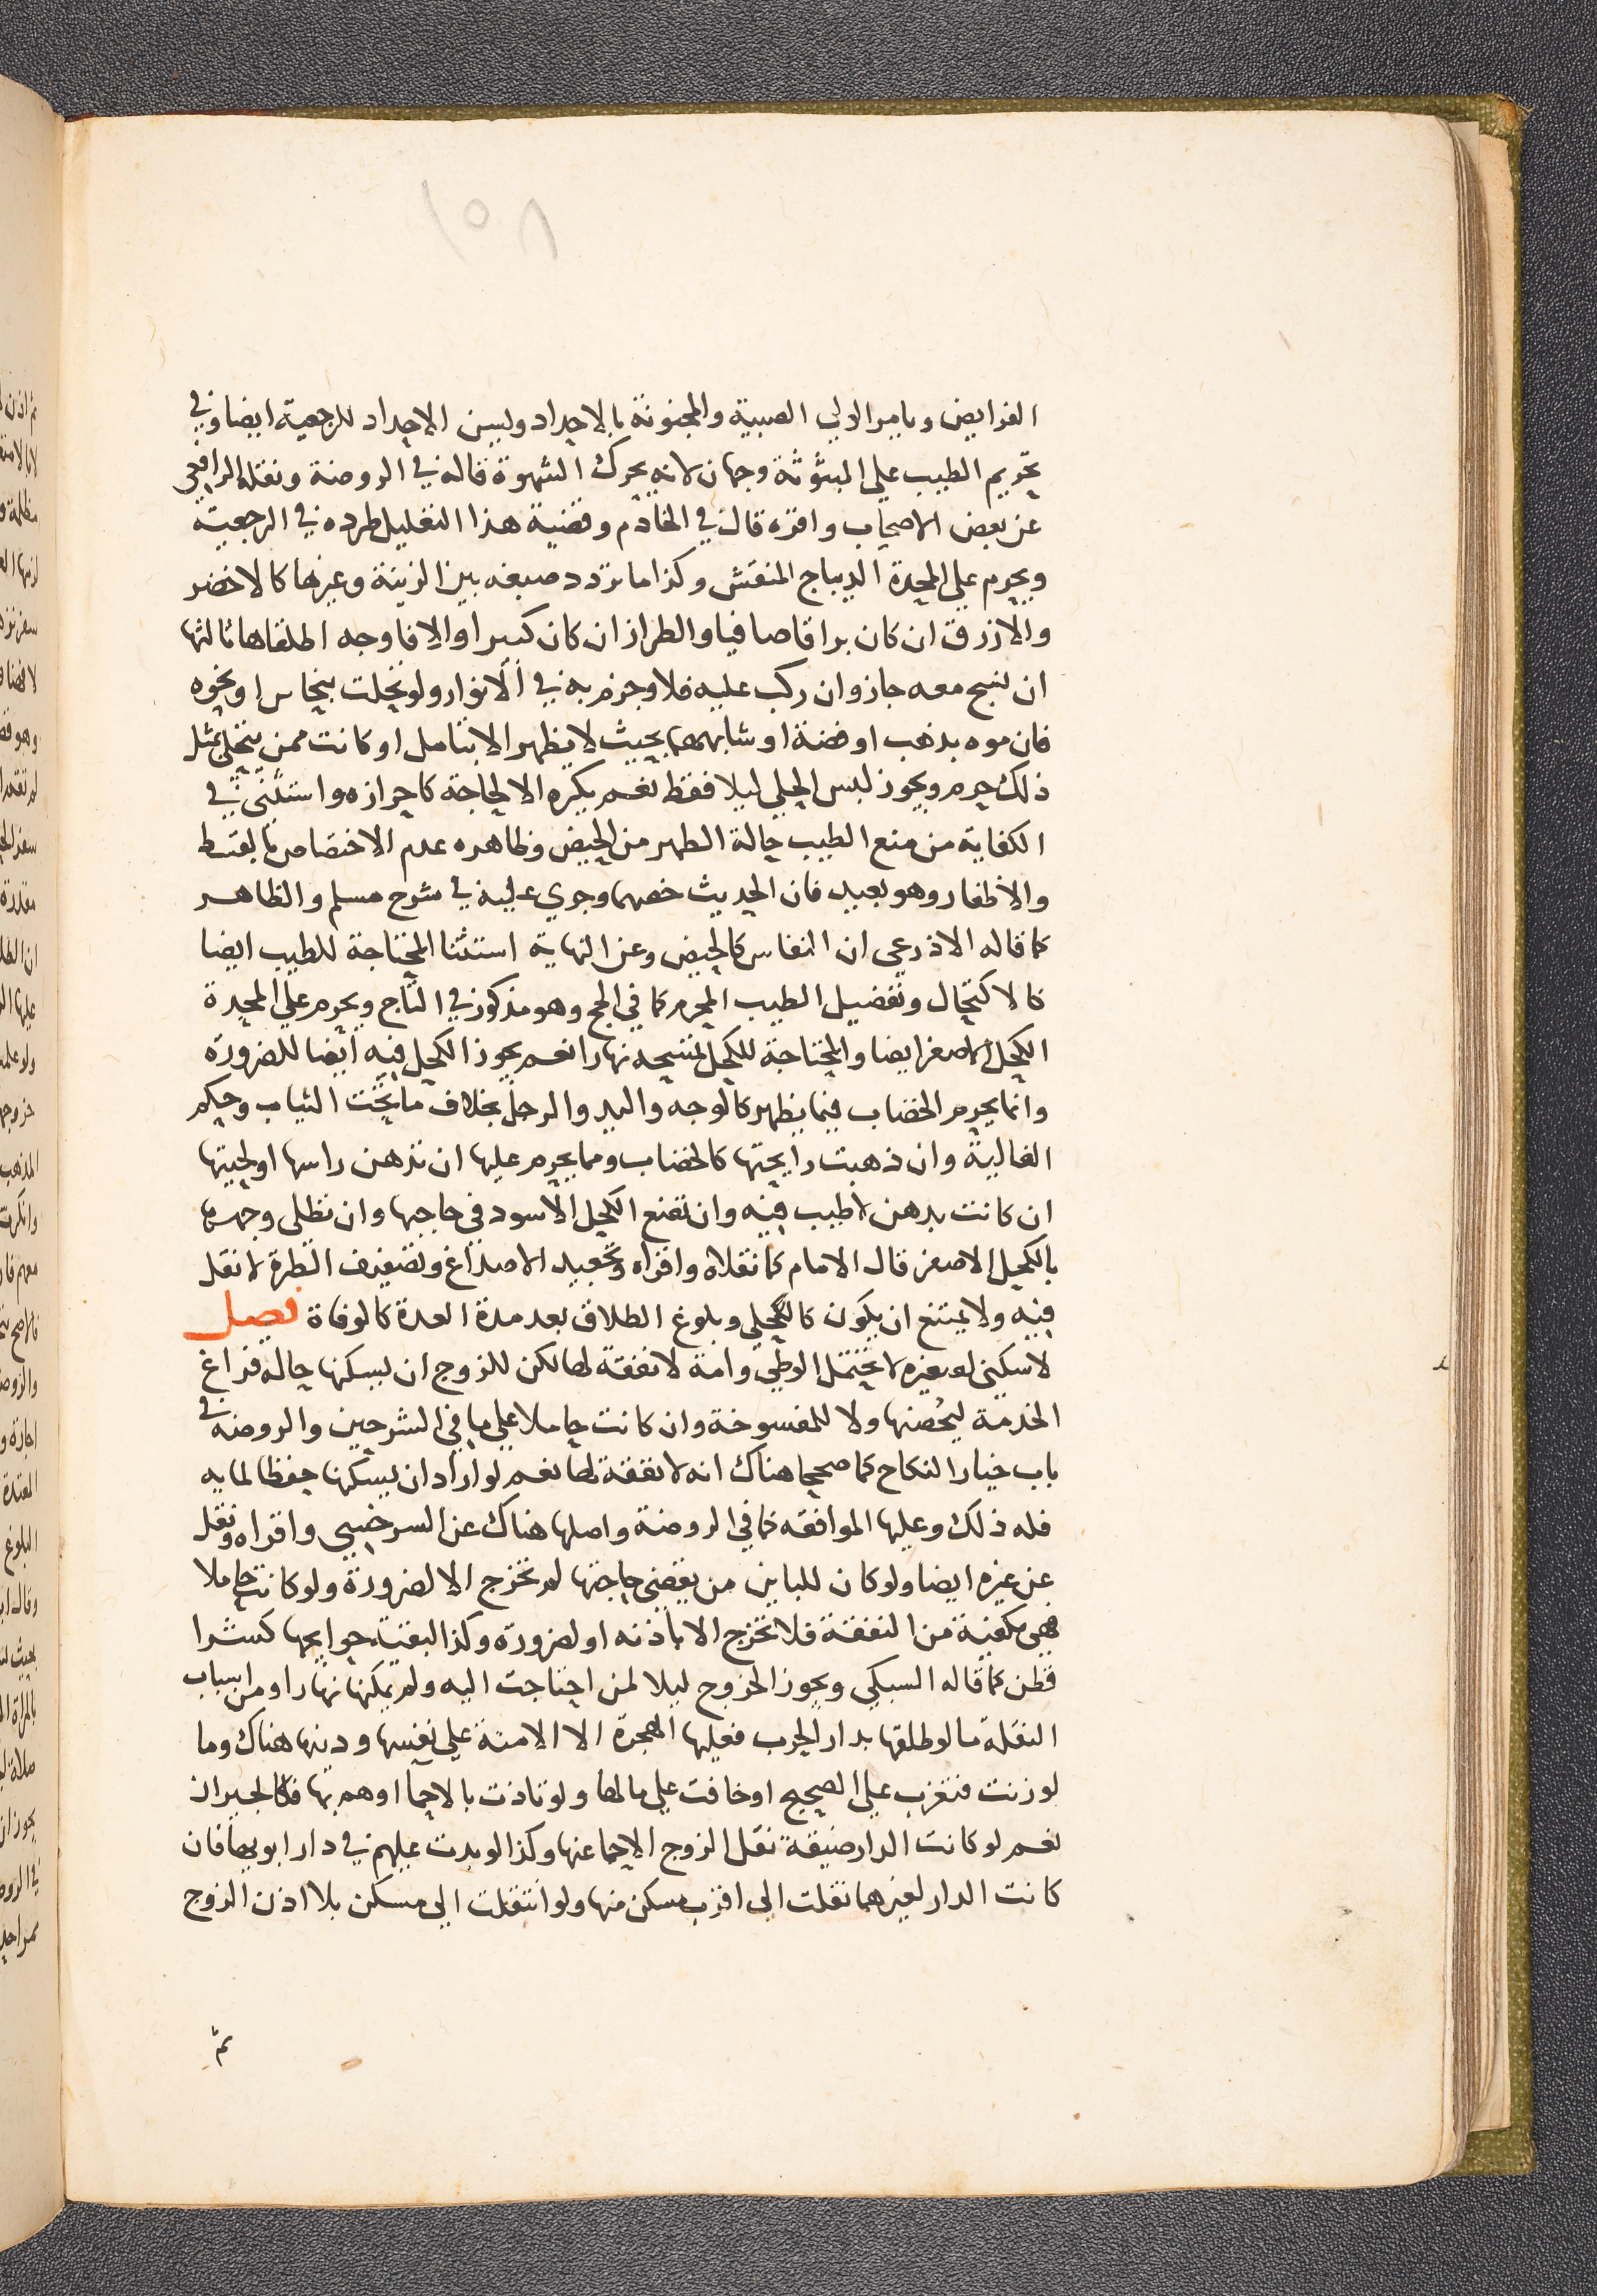 ١٥٨
الفرايض ويامر الولي الصبية والمجنونة بالاحداد ويسن الاحداد للرجعية ايضا وفي
تحريم الطيب علي المبثوثة وجهان لانه يحرك الشهوة قاله في الروضة ونقله الرافعى
عن بعض الاصحاب واقره قال في الخادم وقضية هذا التعليل طرده في الرجعية
ويحرم علي المحدة الديباج المنقش وكذا ما تردد صبغه بين الزينة وغيرها كالاخضر
والازرق ان كان براقا صافيا والطراز ان كان كبيرا والا فاوجه اطلقاها ثالثها
ان نسج معه جاز وان ركب عليه فلا وجزم به في الانوار ولو تحلت بنحاس او نحوه
فان موه بذهب او فضة او شابههما بحيث لا يظهر الا بتامل او كانت ممن يتحلي بمثل
ذلك حرم ويجوز لبس الحلي ليلا فقط نعم يكره الا لحاجة كاحرازه واستثني في
الكفاية من منع الطيب حالة الطهر من الحيض وظاهره عدم الاختصاص بالقسط
والاظفار وهو بعيد فان الحديث خصهما وجري عليه في شرح مسلم والظاهر
كما قاله الاذرعى ان النفاس كالحيض وعن النهاية استثنا المحتاجة للطيب ايضا
كالاكتحال وتفصيل الطيب المحرم كما في الحج وهو مذكور في التاج ويحرم علي المحدة
الكحل الاصفر ايضا والمحتاجة للكحل تمسحه نهارا نعم يجوز الكحل فيه ايضا للضرورة
وانما يحرم الخضاب فيما يظهر كالوجه واليد والرجل بخلاف ما تحت الثياب وحكم
الغالية وان ذهبت رايحتها كالخضاب ومما يحرم عليها ان تدهن راسها او لحيتها
ان كانت بدهن لا طيب فيه وان تضع الكحل الاسود في حاجبها وان تطلى وجهها
بالكحل الاصفر قال الامام كما نقلاه واقراه وتجعيد الاصداغ وتصفيف الطرة لا نقل
فيه ولا يمتنع ان يكون كالحلي وبلوغ الطلاق بعد مدة العدة كالوفاة فصل
لا سكنى لصغيرة لا تحتمل الوطي وامة لا نفقة لها لكن للزوج ان يسكنها حالة فراغ
الخدمة ليحصنها ولا للمفسوخة وان كانت حاملا علي ما في الشرحين والروضة في
باب خيار النكاح كما صححا هناك انه لا نفقة لها نعم لو اراد ان يسكنها حفظا لمايه
فله ذلك وعليها الموافقه كما في الروضة واصلها هناك عن السرخسي واقراه ونقل
عن غيره ايضا ولو كان للباين من يقضى حاجتها لم تخرج الا لضرورة ولو كانت حاملا
فهى مكفية من النفقة فلا تخرج الا باذنه او لضرورة وكذا البقية حوايجها كشرا
قطن كما قاله السبكى ويجوز الخروج ليلا لمن احتاجت اليه ولم يمكنها نهارا ومن اسباب
النقلة ما لو طلقها بدار الحرب فعليها الهجرة الا الامنة علي نفسها ودينها هناك وما
لو زنت فتغرب علي الصحيح او خافت علي مالها ولو تاذت بالاحما او هم بها فكالجيران
نعم لو كانت الدار ضيقة نقل الزوج الاحما عنها وكذا لو بدت عليهم في دار ابويها فان
كانت الدار لغيرهما نقلت الي اقرب مسكن منها ولو انتقلت الي مسكن بلا اذن الزوج
ثم